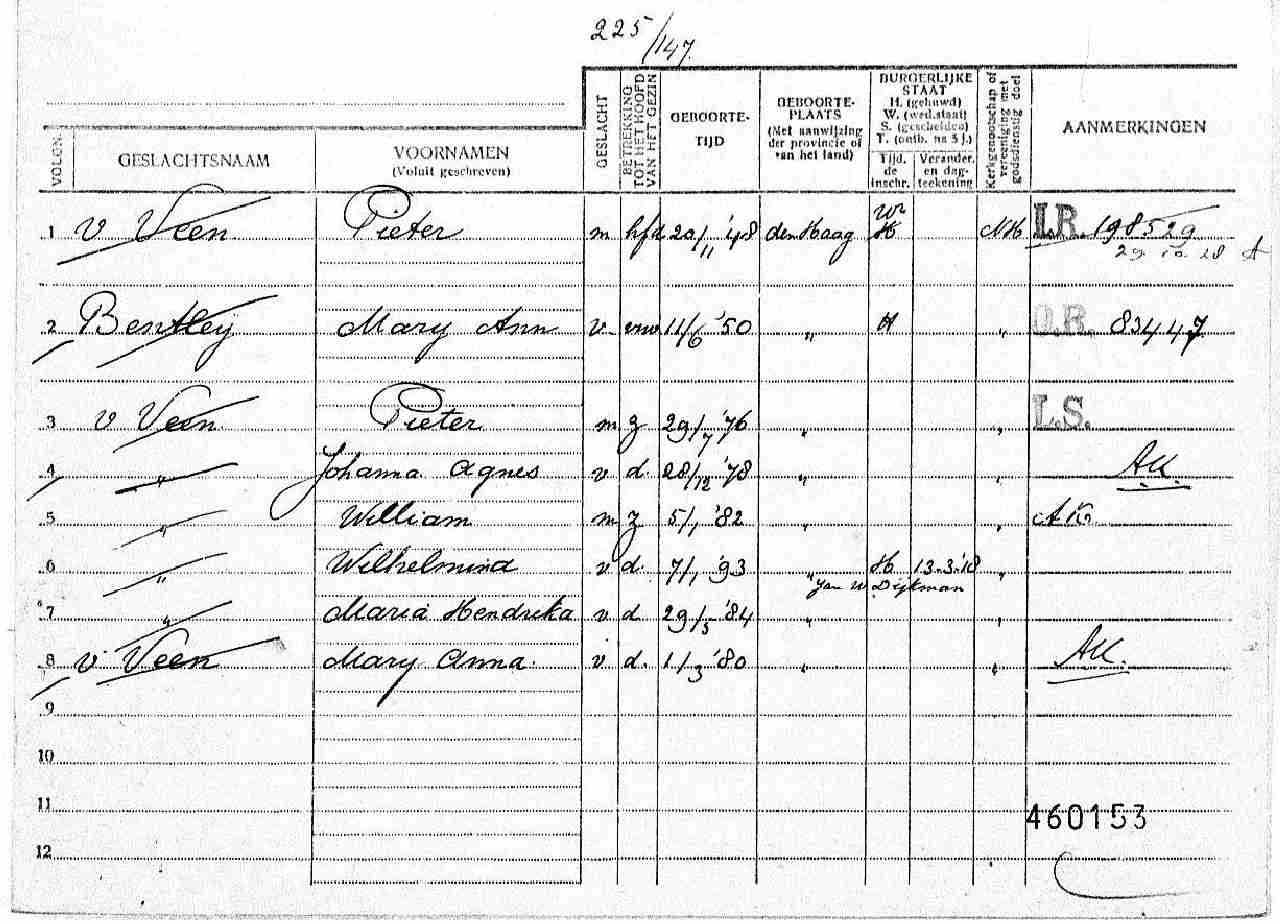 225/147.
VOLGN.
GESLACHTSNAAM
VOORNAMEN
(Voluit geschreven)
GESLACHT
BETREKKING
TOT HET HOOFD
VAN HET GEZIN
GEBOORTE-
TIJD
GEBOORTE-
PLAATS
(Met aanwijzing
der provincie of
van het land)
BURGERLIJKE
STAAT
H. (gehuwd)
W. (wed.staat)
S. (gescheiden)
T. (ontb. na 3 j.)
Tijd.
de
inschr.
Verander.
en dag-
teekening
Kerkgenootschap of
vereeniging met
godsdienstig doel
AANMERKINGEN
Wr
1 v Veen Pieter m hfd 20/11 '48 den Haag H NH L.R. 198529
29 10 28 A
2 Bentley Mary Ann v vrw 11/6 '50 " H " O.R. 83447
3 v Veen Pieter m z 29/7 '76 " " L.S.
4 " Johanna Agnes v d. 28/12 '78 " " AK.
5 " William m z 5/1 '82 " " AK.
6 " Wilhelmina v d. 7/1 '93 " H 13.3.'18 "
Jan W Dijkman
7 " Maria Hendrika v d 29/5 '84 " "
8 v Veen Mary Anna. v d. 1/3 '80 " " AK.
9
10
11
460153
12